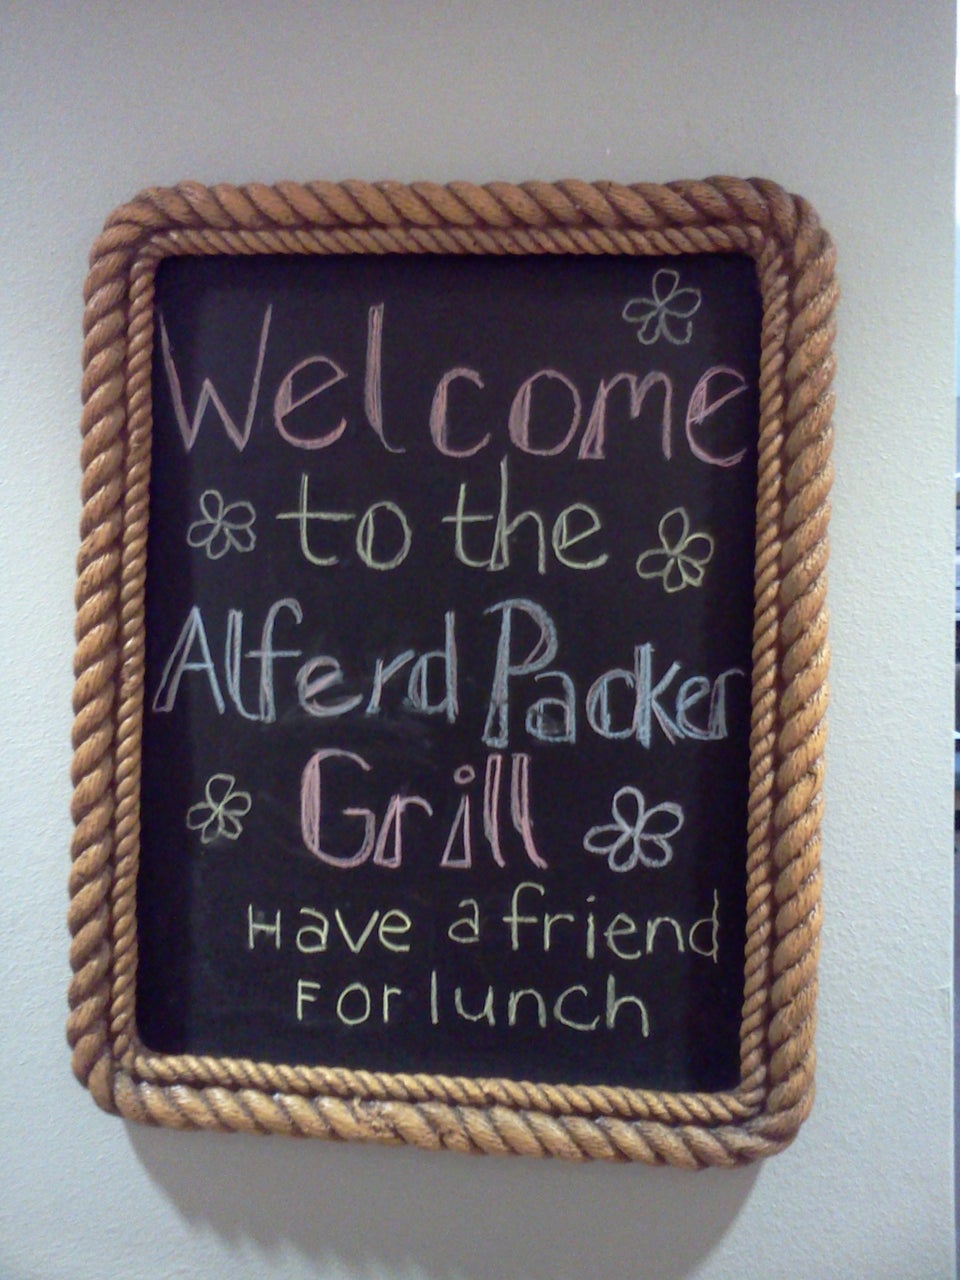 Welcome
to the
Alferd Packer
Grill
Have a friend
For lunch